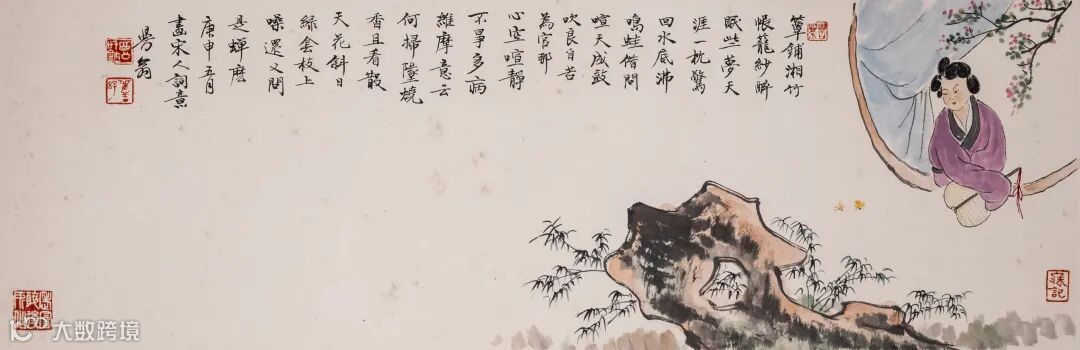 簟鋪湘竹
帳籠紗醉
眠些夢天
涯一枕驚
回水底沸
鳴蛙借問
喧天成鼓
吹良自苦
為官那
心空喧靜
不爭多病
維摩意云
何掃墬燒
香且看散
天花斜日
綠侌枝上
噪還又問
是蟬麼
庚申五月
畫宋人詞意
翁
大数跨境